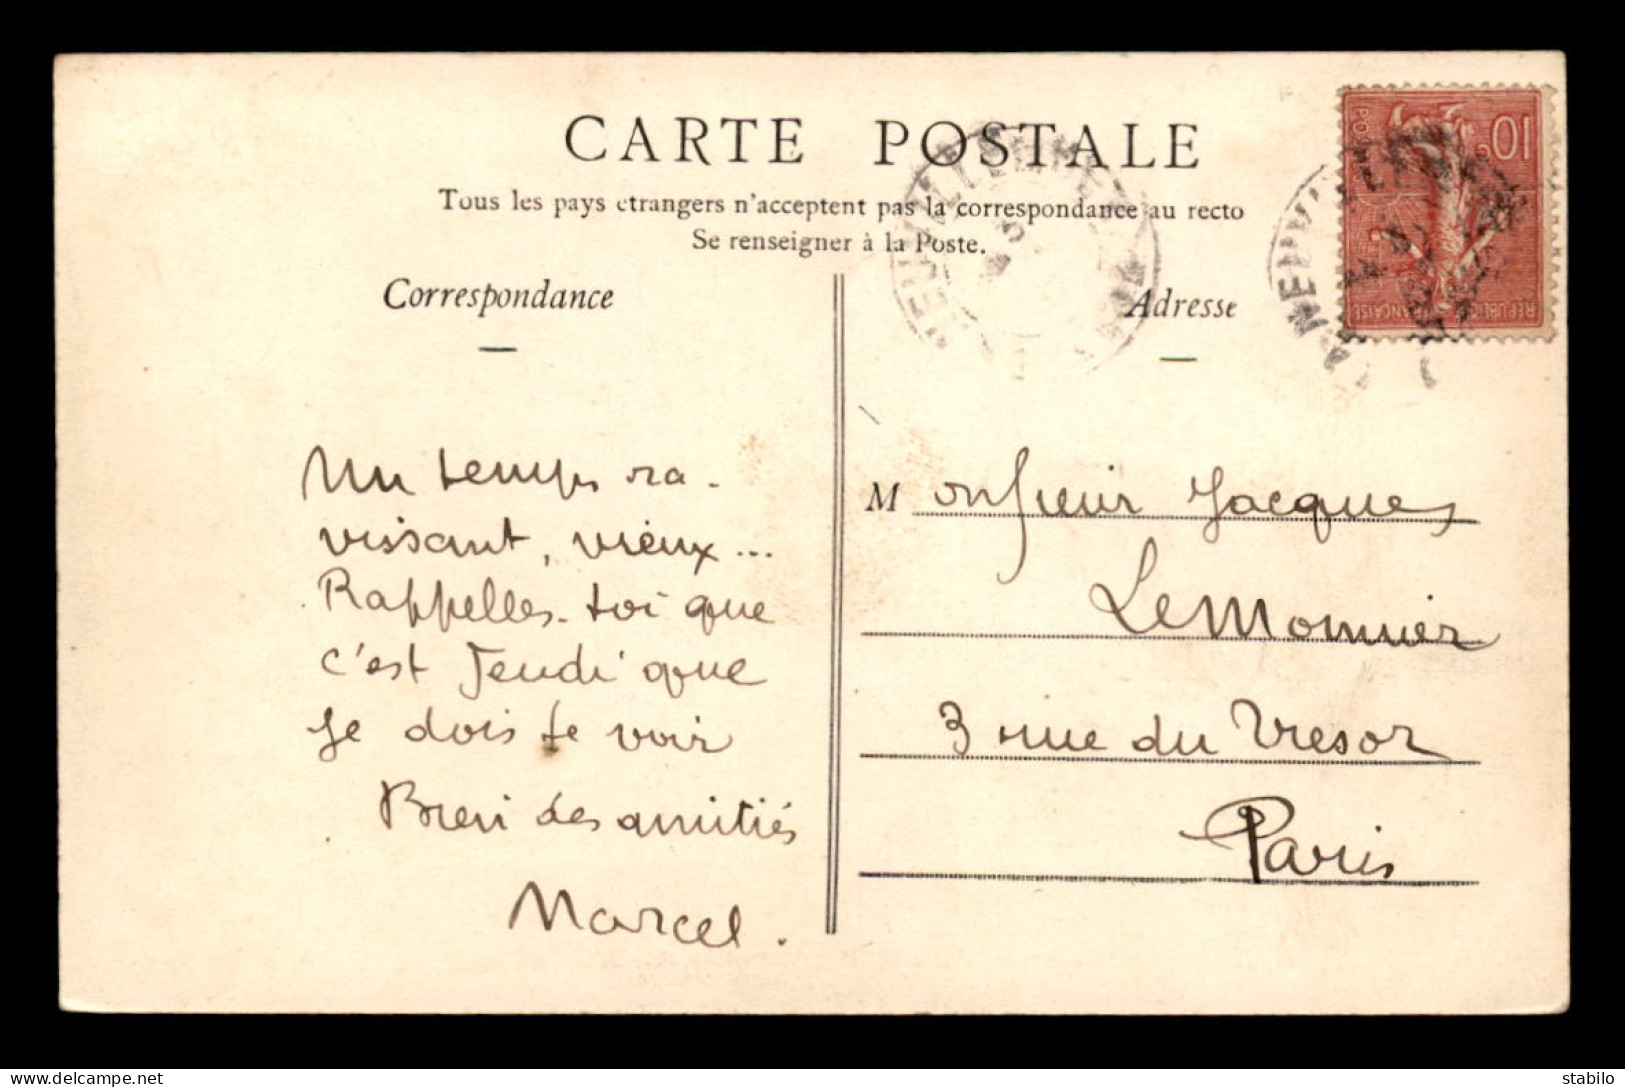 CARTE POSTALE
Tous les pays etrangers n'acceptent pas la correspondance au recto
Se renseigner à la Poste.
Correspondance
Un temps ra-
vissant, vieux...
Rappelles-toi que
c'est Jeudi que
je dois te voir
Bien des amitiés
Marcel.
Adresse
10c
POSTES
REPUBLIQUE FRANÇAISE
Monsieur Jacques
LeMonnier
3 rue du Tresor
Paris
delcampe.net
stabilo